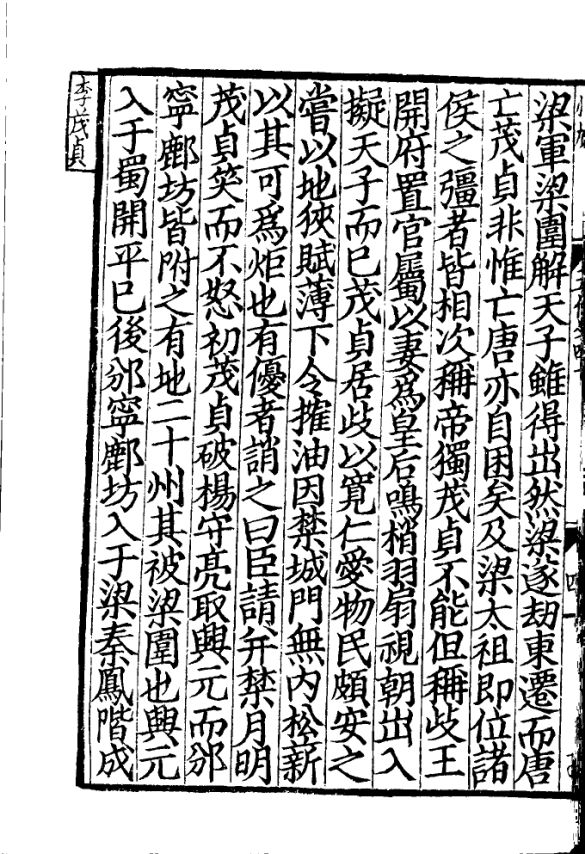 梁軍梁圍解天子雖得出然梁遂劫東遷而唐
亡茂貞非惟亡唐亦自困矣及梁太祖即位諸
侯之彊者皆相次稱帝獨茂貞不能但稱岐王
開府置官屬以妻爲皇后鳴梢羽扇視朝出入
擬天子而已茂貞居岐以寬仁愛物民頗安之
嘗以地狹賦薄下令搉油因禁城門無内松薪
以其可爲炬也有優者誚之曰臣請并禁月明
茂貞笑而不怒初茂貞破楊守亮取興元而邠
寧鄜坊皆附之有地二十州其被梁圍也興元
入于蜀開平已後邠寧鄜坊入于梁秦鳳階成
李茂貞